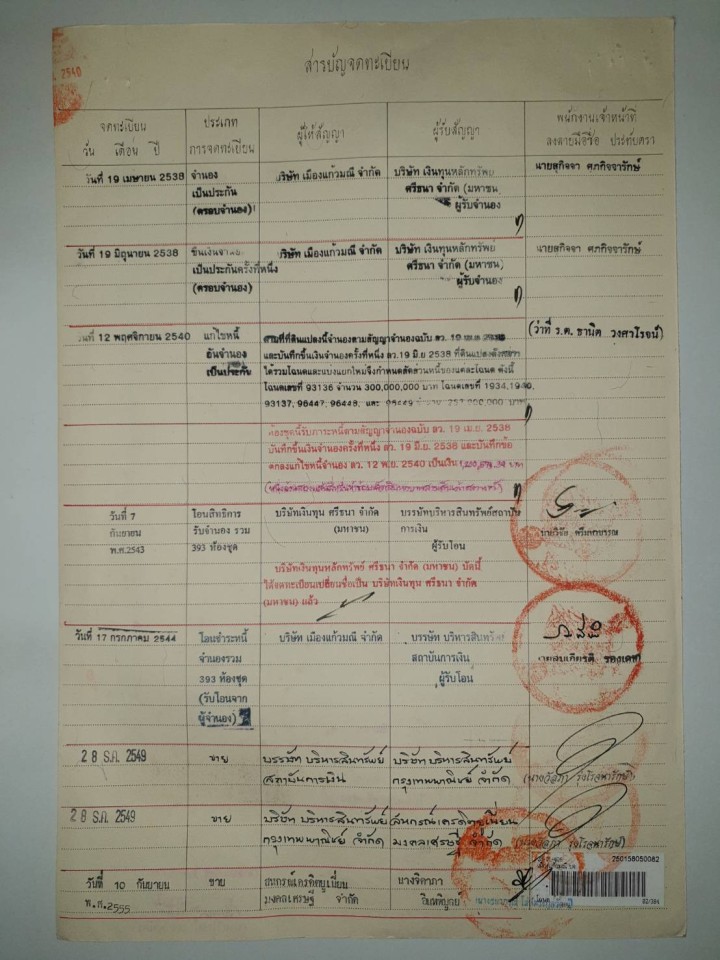 สารบัญจดทะเบียน
2540
จดทะเบียน
วัน เดือน ปี
ประเภท
การจดทะเบียน
ผู้ให้สัญญา
ผู้รับสัญญา
พนักงานเจ้าหน้าที่
ลงลายมือชื่อ ประทับตรา
วันที่ 19 เมษายน 2538
จำนอง
เป็นประกัน
(ครอบจำนอง)
บริษัท เมืองแก้วมณี จำกัด
บริษัท เงินทุนหลักทรัพย์
ศรีธนา จำกัด (มหาชน)
ผู้รับจำนอง
นายสุกิจจา ศภกิจจารักษ์
วันที่ 19 มิถุนายน 2538
ขึ้นเงินจำนอง
เป็นประกันครั้งที่หนึ่ง
(ครอบจำนอง)
บริษัท เมืองแก้วมณี จำกัด
บริษัท เงินทุนหลักทรัพย์
ศรีธนา จำกัด (มหาชน)
ผู้รับจำนอง
นายสุกิจจา ศภกิจจารักษ์
วันที่ 12 พฤศจิกายน 2540
แก้ไขหนี้
อันจำนอง
เป็นประกัน
ที่ดินแปลงนี้จำนองตามสัญญาจำนองฉบับ ลว. 19
และบันทึกขึ้นเงินจำนองครั้งที่หนึ่ง ลว.19 มิ.ย 2538 ที่ดินแปลง
ได้รวมโฉนดและแบ่งแยกใหม่จึงกำหนดสัดส่วนหนี้ของแต่ละโฉนด ดังนี้
โฉนดเลขที่ 93136 จำนวน 300,000,000 บาท โฉนดเลขที่ 1934,1940,
93137, 96447, 96448, และ 96449
(ว่าที่ ร.ต. ธานิต วงศวโรจน์)
ห้องชุดนี้รับภาระหนี้ตามสัญญาจำนองฉบับ ลว. 19 เม.ย. 2538
บันทึกขึ้นเงินจำนองครั้งที่หนึ่ง ลว. 19 มิ.ย. 2538 และบันทึกข้อ
ตกลงแก้ไขหนี้จำนอง ลว. 12 พ.ย. 2540 เป็นเงิน
วันที่ 7
กันยายน
พ.ศ.2543
โอนสิทธิการ
รับจำนอง รวม
393 ห้องชุด
บริษัทเงินทุน ศรีธนา จำกัด
(มหาชน)
บรรษัทบริหารสินทรัพย์สถาบัน
การเงิน
ผู้รับโอน
บริษัทเงินทุนหลักทรัพย์ ศรีธนา จำกัด (มหาชน) บัดนี้
ได้จดทะเบียนเปลี่ยนชื่อเป็น บริษัทเงินทุน ศรีธนา จำกัด
(มหาชน) แล้ว
วันที่ 17 กรกฎาคม 2544
โอนชำระหนี้
จำนองรวม
393 ห้องชุด
(รับโอนจาก
ผู้จำนอง)
บริษัท เมืองแก้วมณี จำกัด
บรรษัท บริหารสินทรัพย์
สถาบันการเงิน
ผู้รับโอน
28 ธ.ค. 2549
ขาย
บรรษัท บริหารสินทรัพย์
สถาบันการเงิน
บริษัท บริหารสินทรัพย์
กรุงเทพพาณิชย์ จำกัด
28 ธ.ค. 2549
ขาย
บริษัท บริหารสินทรัพย์
กรุงเทพพาณิชย์ จำกัด
สหกรณ์เครดิตยูเนี่ยน
มงคลเศรษฐี จำกัด
วันที่ 10 กันยายน
พ.ศ.2555
ขาย
สหกรณ์เครดิตยูเนี่ยน
มงคลเศรษฐี จำกัด
นางจิดาภา
250158050082